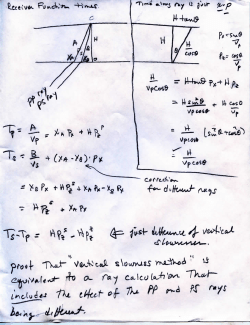 Receiver Function times
Time along ray is just x·p
C
H tanθ
A
H
H
θ
H
cosθ
Px = sinθ
Vp
Pz = cosθ
Vp
XA
XB
PP ray
PS ray
H
Vp cosθ
= H tanθ Px + H Pz
= H sin²θ
Vp cosθ
+ H cosθ
Vp
= H
Vp cosθ
[sin²θ + cos²θ]
= H
Vp cosθ
Tp = A
Vp
= XA Px + H Pz^P
Ts = B
Vs
+ (XA - XB)·Px
correction
for different rays
= XB Px + H Pz^S + XA Px - XB Px
= H Pz^S + XA Px
Ts - Tp = H Pz^S - H Pz^P
just difference of vertical
slownesses.
proof that "vertical slowness method" is
equivalent to a ray calculation that
includes the effect of the PP and PS rays
being different.